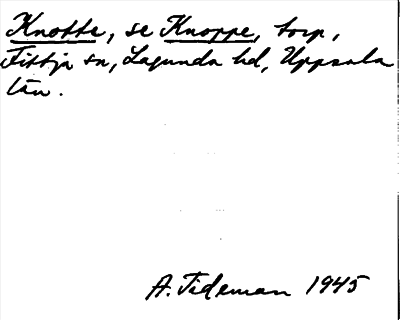 Knotte, se Knoppe, torp,
Fittja sn, Lagunda hd, Uppsala
län.
A. Tideman 1945